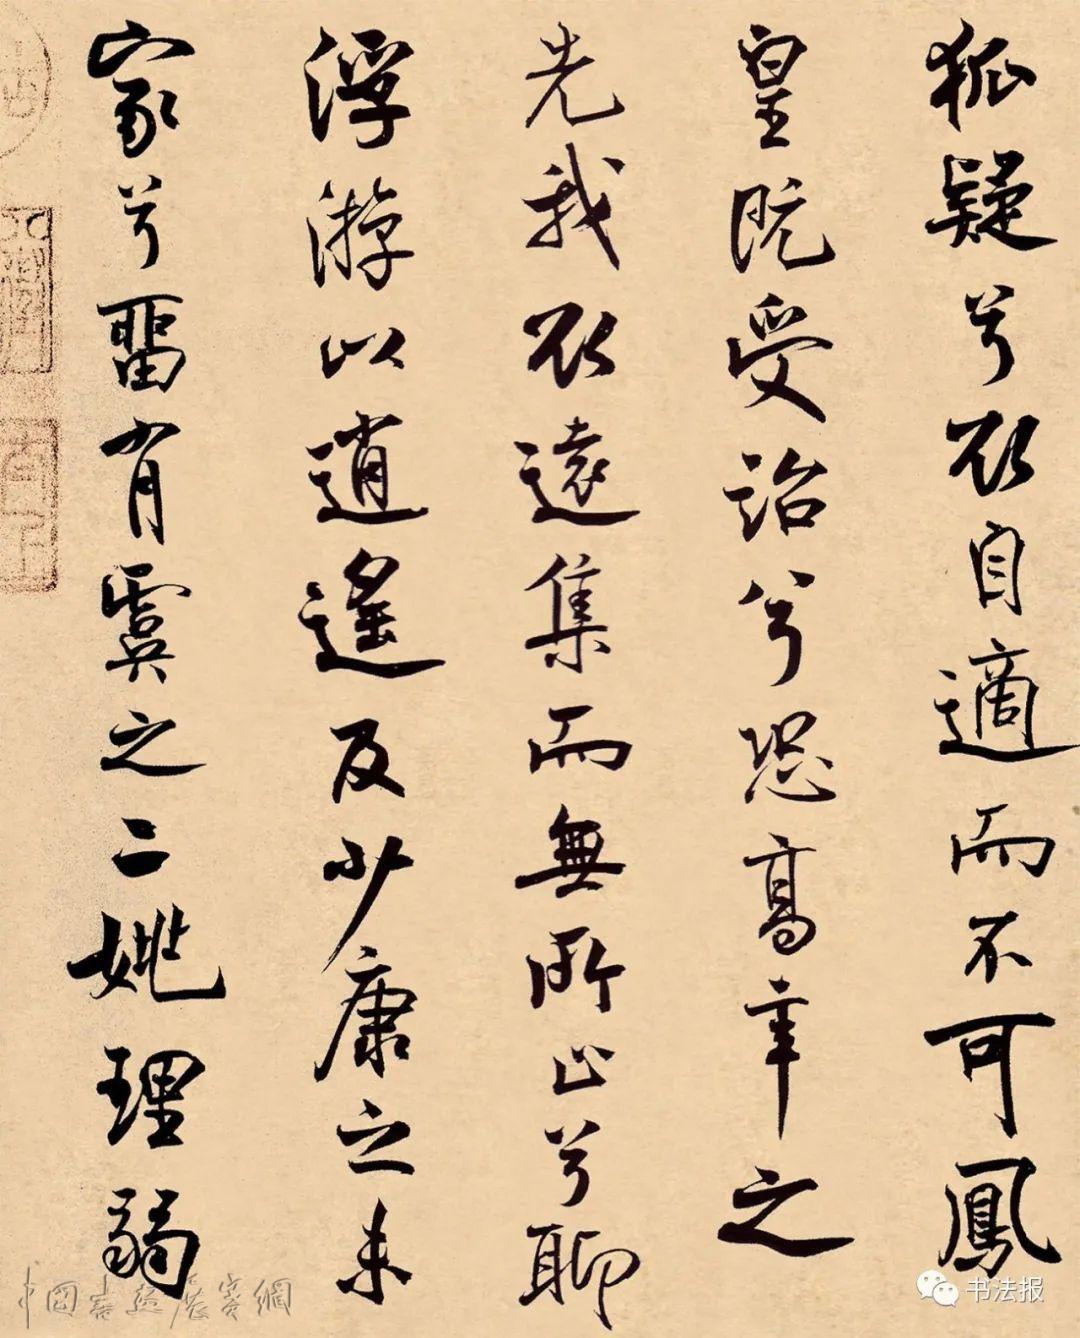 狐疑兮欲自適而不可鳳
皇既受詒兮恐高辛之
先我欲遠集而無所止兮聊
浮游以逍遙及少康之未
家兮畱有虞之二姚理弱
中國書法展賽網
书法报